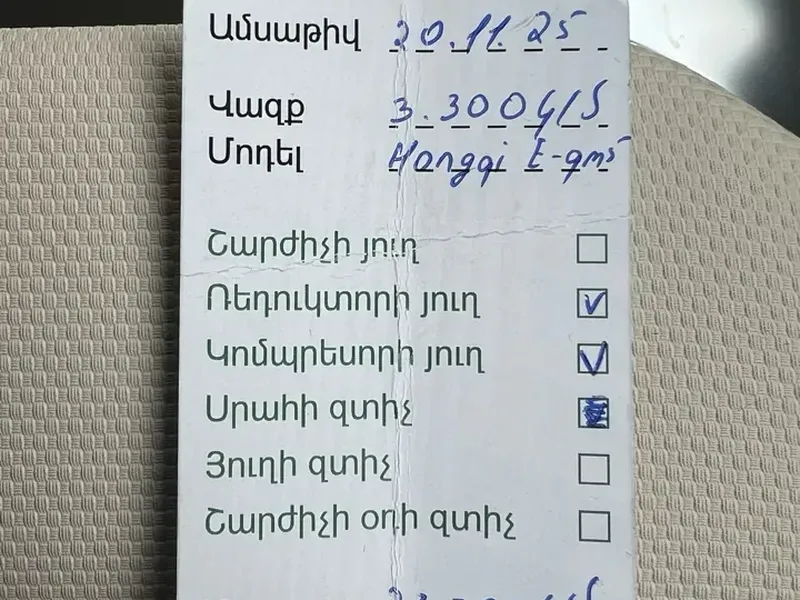 Ամսաթիվ 20.11.25
Վազք 3.300 կ/Տ
Մոդել Hongqi E-qm5
Շարժիչի յուղ
Ռեդուկտորի յուղ
Կոմպրեսորի յուղ
Սրահի զտիչ
Յուղի զտիչ
Շարժիչի օդի զտիչ